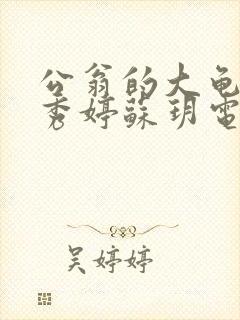 公翁的大龟
秀婷蘇玥電
吴婷婷